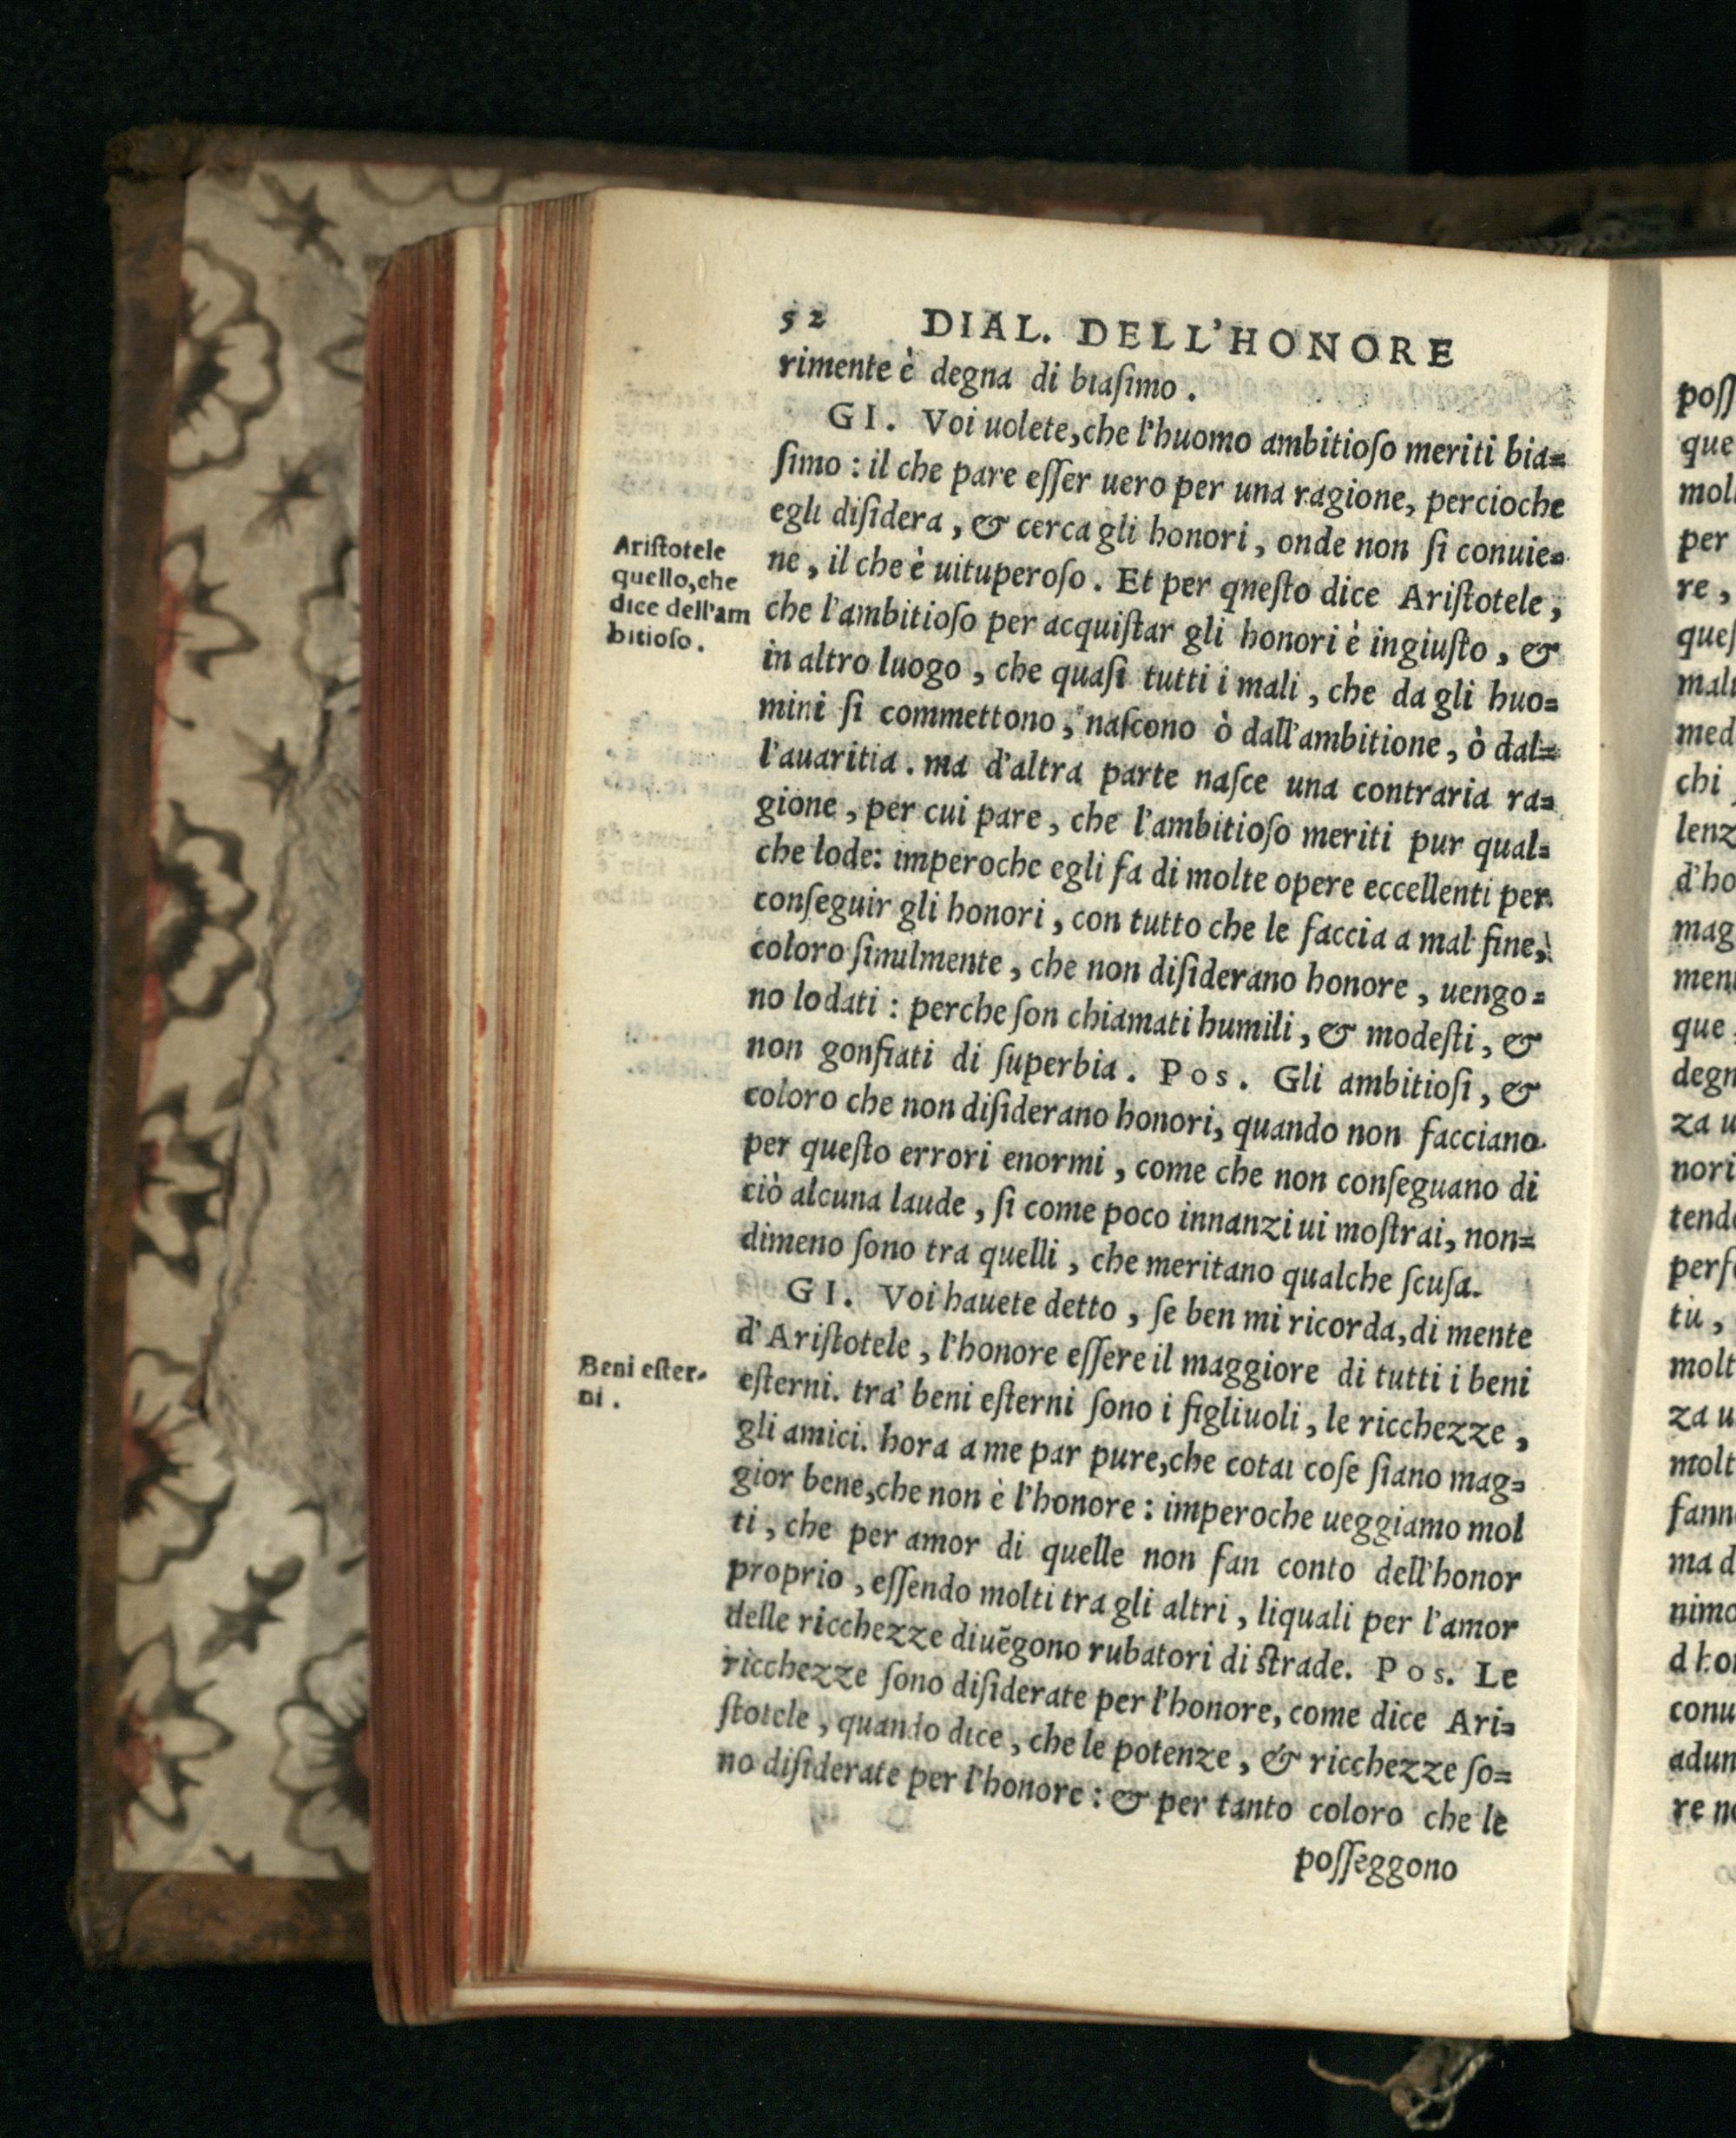 52 DIAL. DELL'HONORE
rimente è degna di biasimo.
GI. Voi uolete, che l'huomo ambitioſo meriti bia=
ſimo: il che pare eſſer uero per una ragione, percioche
egli diſidera, & cerca gli honori, onde non ſi conuie=
ne, il che è uituperoſo. Et per qneſto dice Ariſtotele,
che l'ambitioſo per acquiſtar gli honori è ingiuſto, &
in altro luogo, che quaſi tutti i mali, che da gli huo=
mini ſi commettono, naſcono ò dall'ambitione, ò dal=
l'auaritia. ma d'altra parte naſce una contraria ra=
gione, per cui pare, che l'ambitioſo meriti pur qual=
che lode: imperoche egli fa di molte opere eccellenti per
conſeguir gli honori, con tutto che le faccia a mal fine,
coloro ſimilmente, che non diſiderano honore, uengo=
no lodati: perche ſon chiamati humili, & modeſti, &
non gonfiati di ſuperbia. Pos. Gli ambitioſi, &
coloro che non diſiderano honori, quando non facciano
per queſto errori enormi, come che non conſeguano di
ciò alcuna laude, ſi come poco innanzi ui moſtrai, non=
dimeno ſono tra quelli, che meritano qualche ſcuſa.
GI. Voi hauete detto, ſe ben mi ricorda, di mente
d'Ariſtotele, l'honore eſſere il maggiore di tutti i beni
eſterni. tra' beni eſterni ſono i figliuoli, le ricchezze,
gli amici. hora a me par pure, che cotai coſe ſiano mag=
gior bene, che non è l'honore: imperoche ueggiamo mol
ti, che per amor di quelle non fan conto dell'honor
proprio, eſſendo molti tra gli altri, liquali per l'amor
delle ricchezze diuẽgono rubatori di ſtrade. Pos. Le
ricchezze ſono diſiderate per l'honore, come dice Ari=
ſtotele, quando dice, che le potenze, & ricchezze ſo=
no diſiderate per l'honore: & per tanto coloro che le
poſſeggono
Ariſtotele
quello, che
dice dell'am
bitioſo.
Beni eſter-
ni.
poſſ
que
mol
per
re,
queſ
mal
med
chi
lenz
d'ho
mag
men
que
degn
za u
nori
tend
perf
tù,
molt
za u
molt
fann
ma d
nimo
d hon
conu
adun
re n